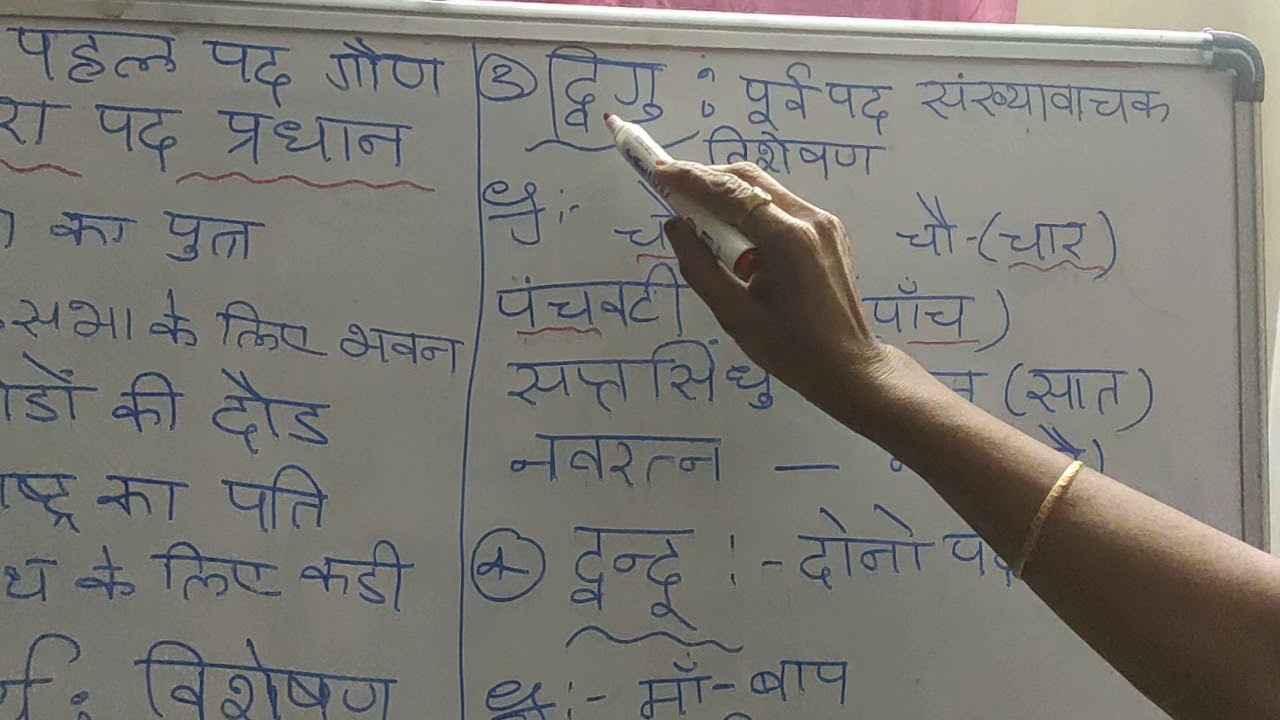 पहल पद गौण
रा पद प्रधान
का पुत्र
सभा के लिए भवन
डों की दौड
ष्ट्र का पति
के लिए कडी
विशेषण
③ द्विगु : पूर्व पद संख्यावाचक
विशेषण
चौ-(चार)
पंचवटी पाँच)
सप्तसिंधु (सात)
नवरत्न —
④ द्वन्द्व :- दोनो
माँ-बाप